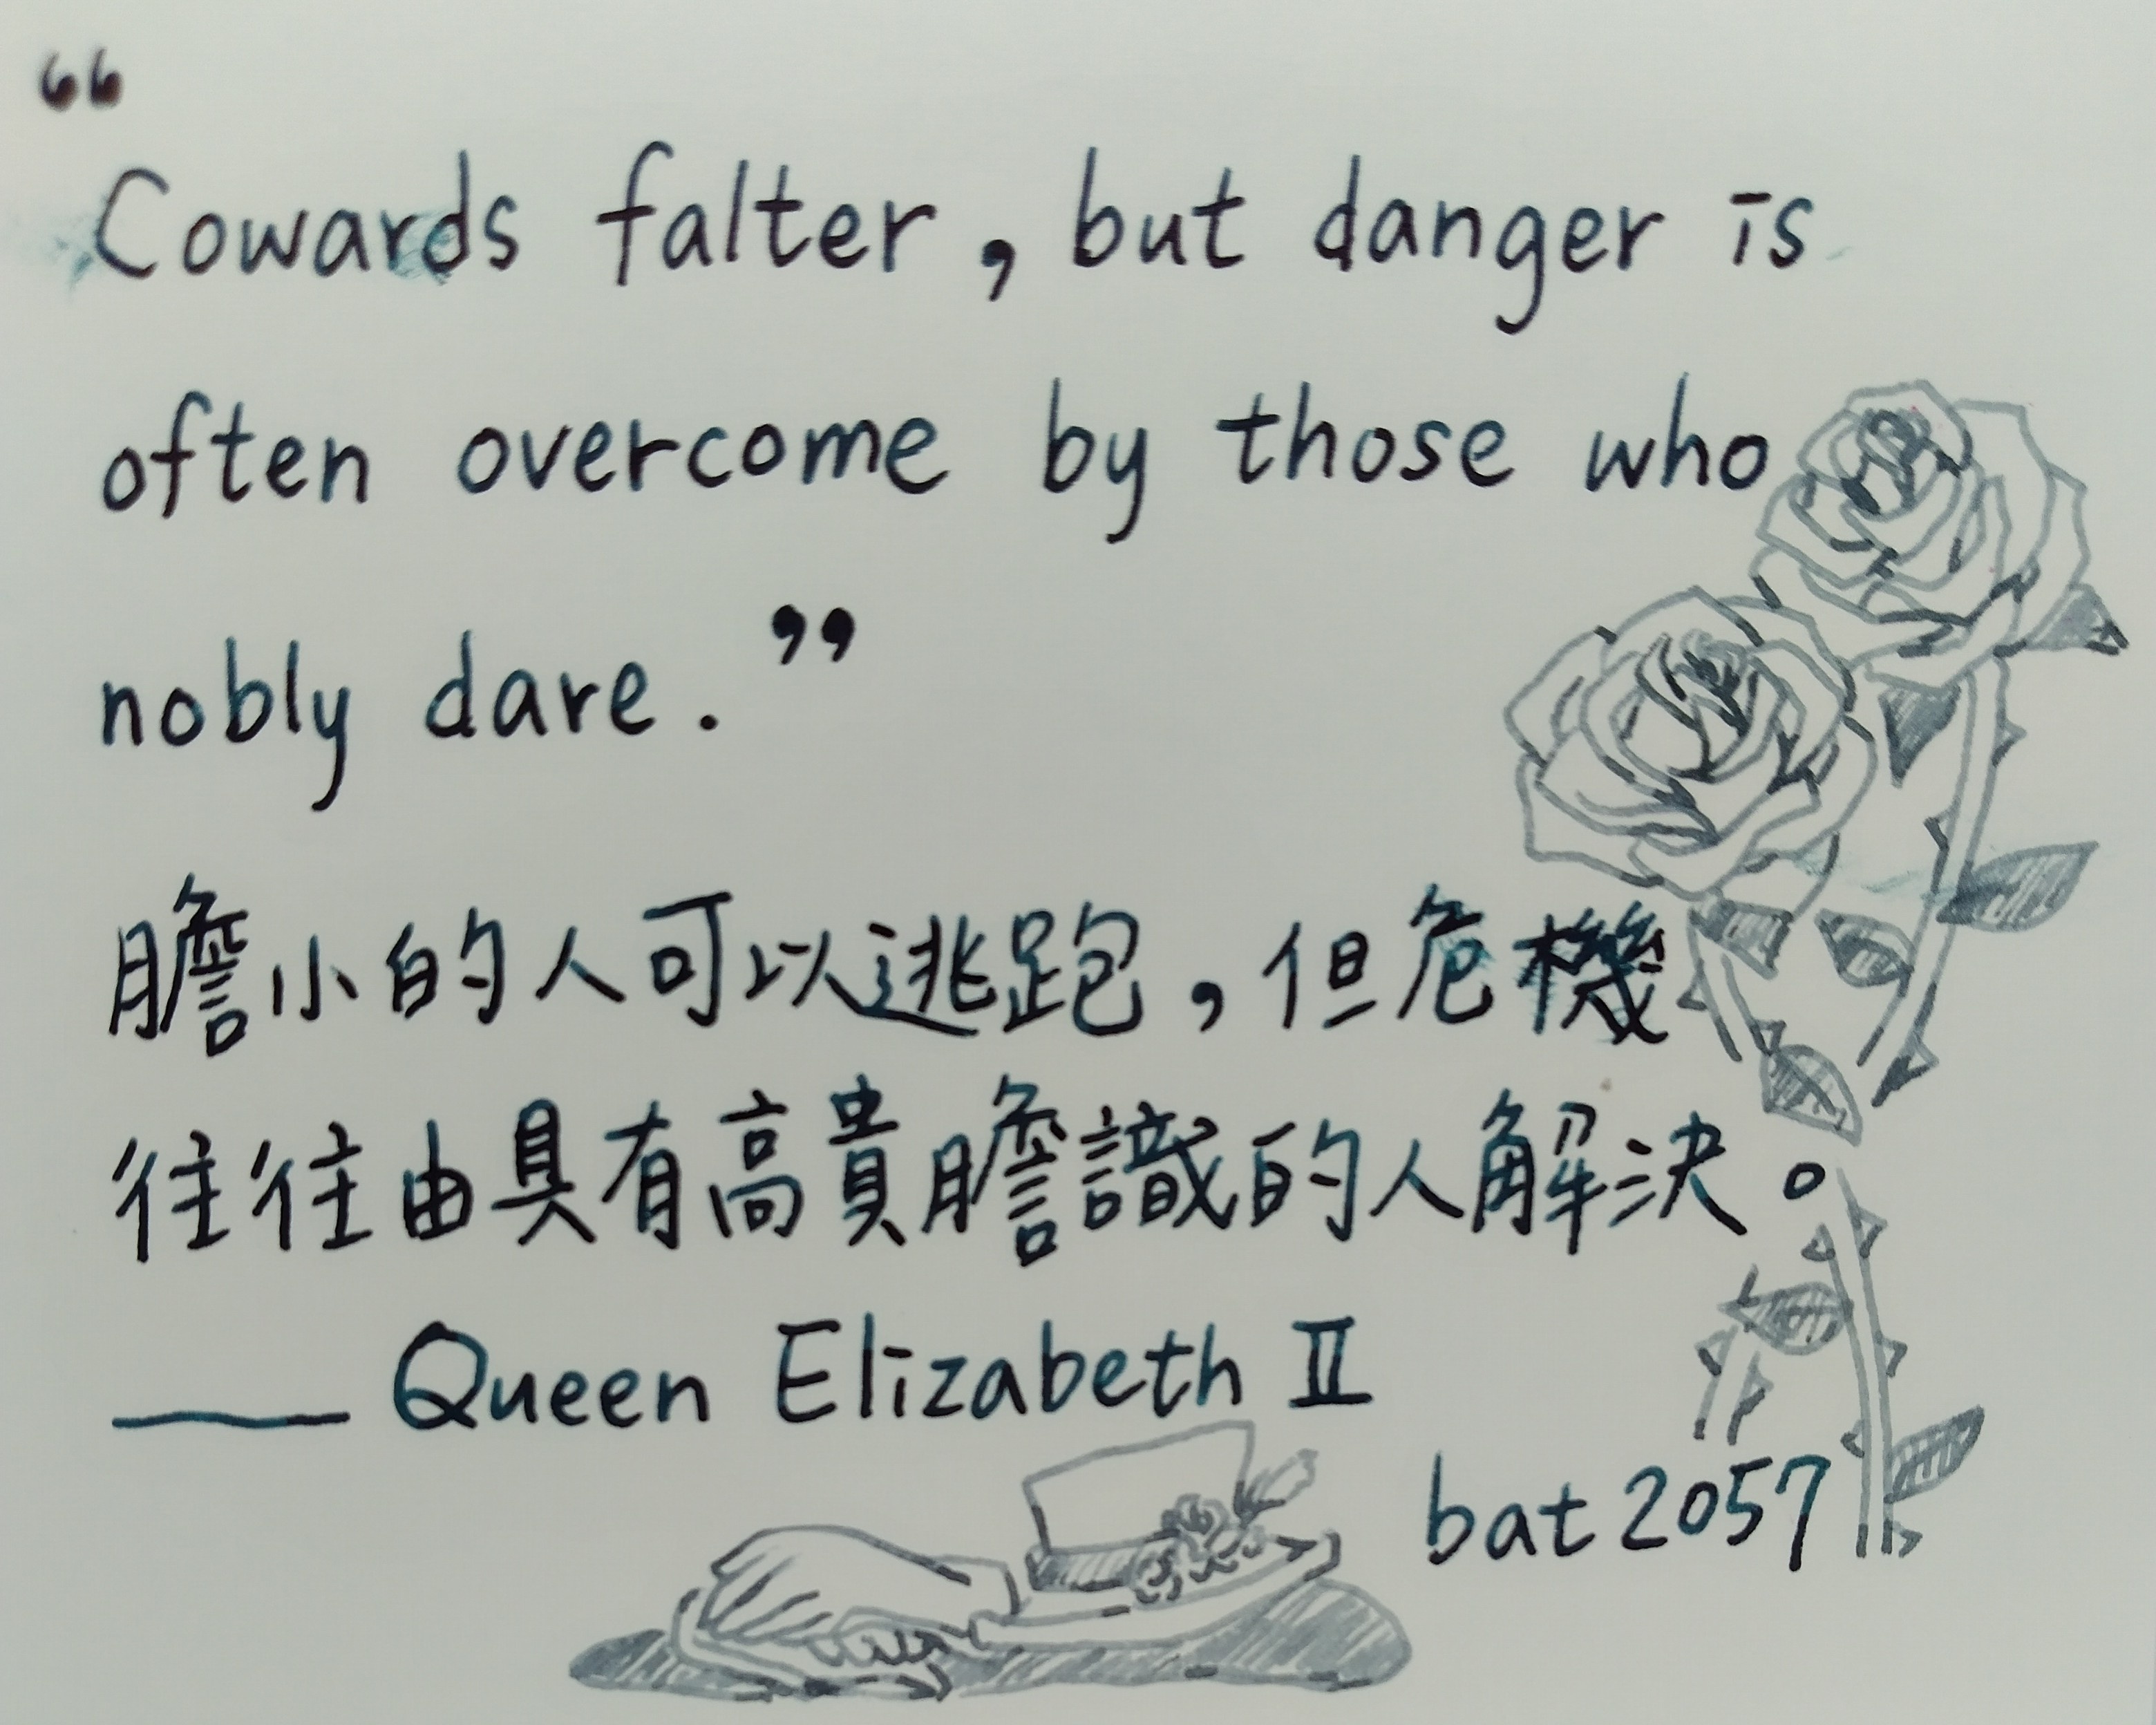 “
Cowards falter, but danger is
often overcome by those who
nobly dare.”
膽小的人可以逃跑，但危機
往往由具有高貴膽識的人解決。
—— Queen Elizabeth II
bat 2057